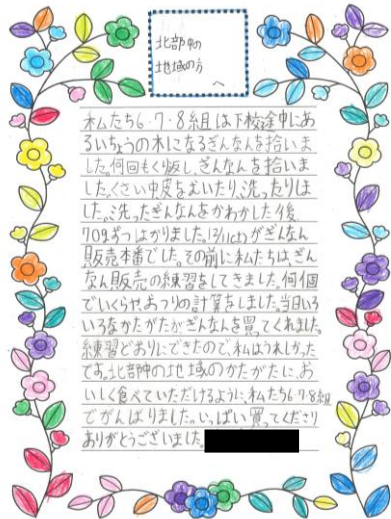 北部中の
地域の方
へ
私たち6・7・8組は下校途中にあ
るいちょうの木になるぎんなんを拾いま
した。何回もくり返し、ぎんなんを拾いま
した。くさい中皮をむいたり、洗ったりしま
した。洗ったぎんなんをかわかした後、
70gずつはかりました。12/11(土)がぎんなん
販売本番でした。その前に私たちは、ぎん
なん販売の練習をしてきました。何個
でいくらや、おつりの計算をしました。当日いろ
いろなかたがたがぎんなんを買ってくれました。
練習どおりにできたので、私はうれしかった
です。北部中の地域のかたがたに、お
いしく食べていただけるように、私たち6・7・8組
でがんばりました。いっぱい買ってくださり
ありがとうございました。